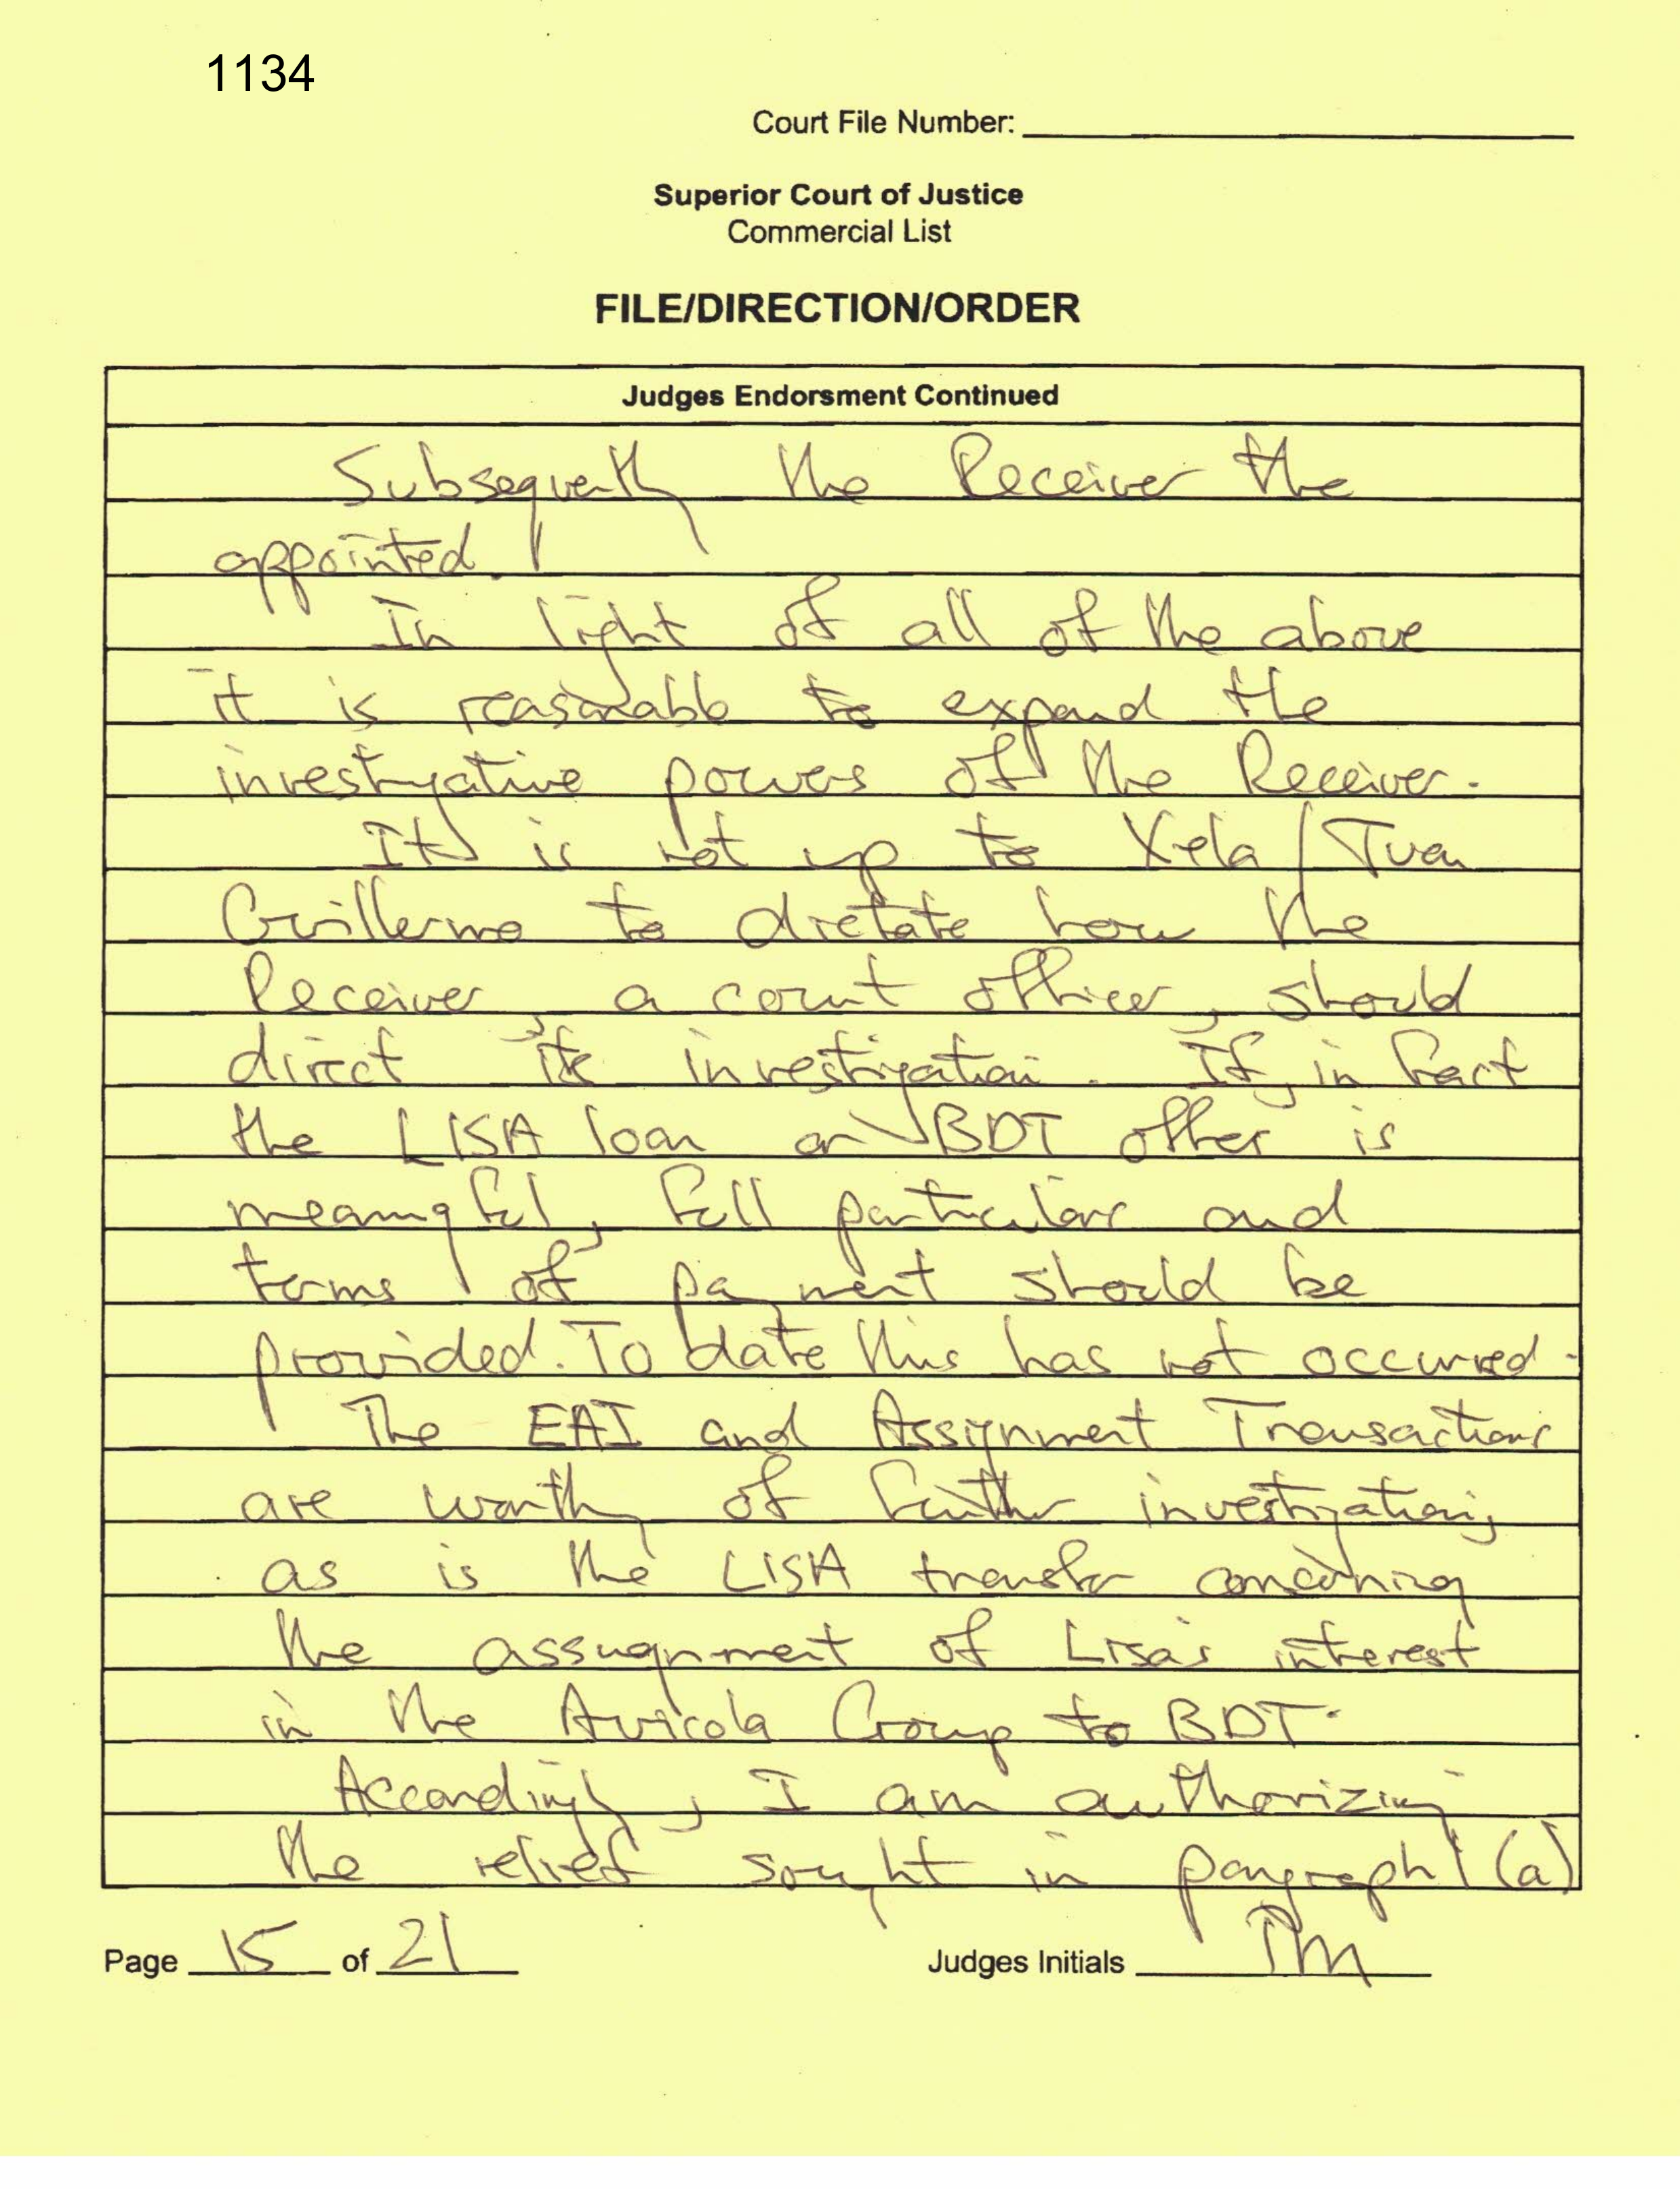 1134
Court File Number:
Superior Court of Justice
Commercial List
FILE/DIRECTION/ORDER
Judges Endorsment Continued
Subsequently the Receiver the
appointed.
In light of all of the above
it is reasonable to expand the
investigative powers of the Receiver.
It is not up to Xela/Juan
Guillermo to dictate how the
Receiver, a court officer, should
direct its investigation. If, in fact
the LISA loan or BDT offer is
meaningful, full particulars and
terms of payment should be
provided. To date this has not occurred.
The EAI and Assignment Transactions
are worthy of further investigation,
as is the LISA transfer concerning
the assugnment of Lisa's interest
in the Avicola Group to BDT.
Accordingly, I am authorizing
the relief sought in paragraph (a)
Page 15 of 21
Judges Initials